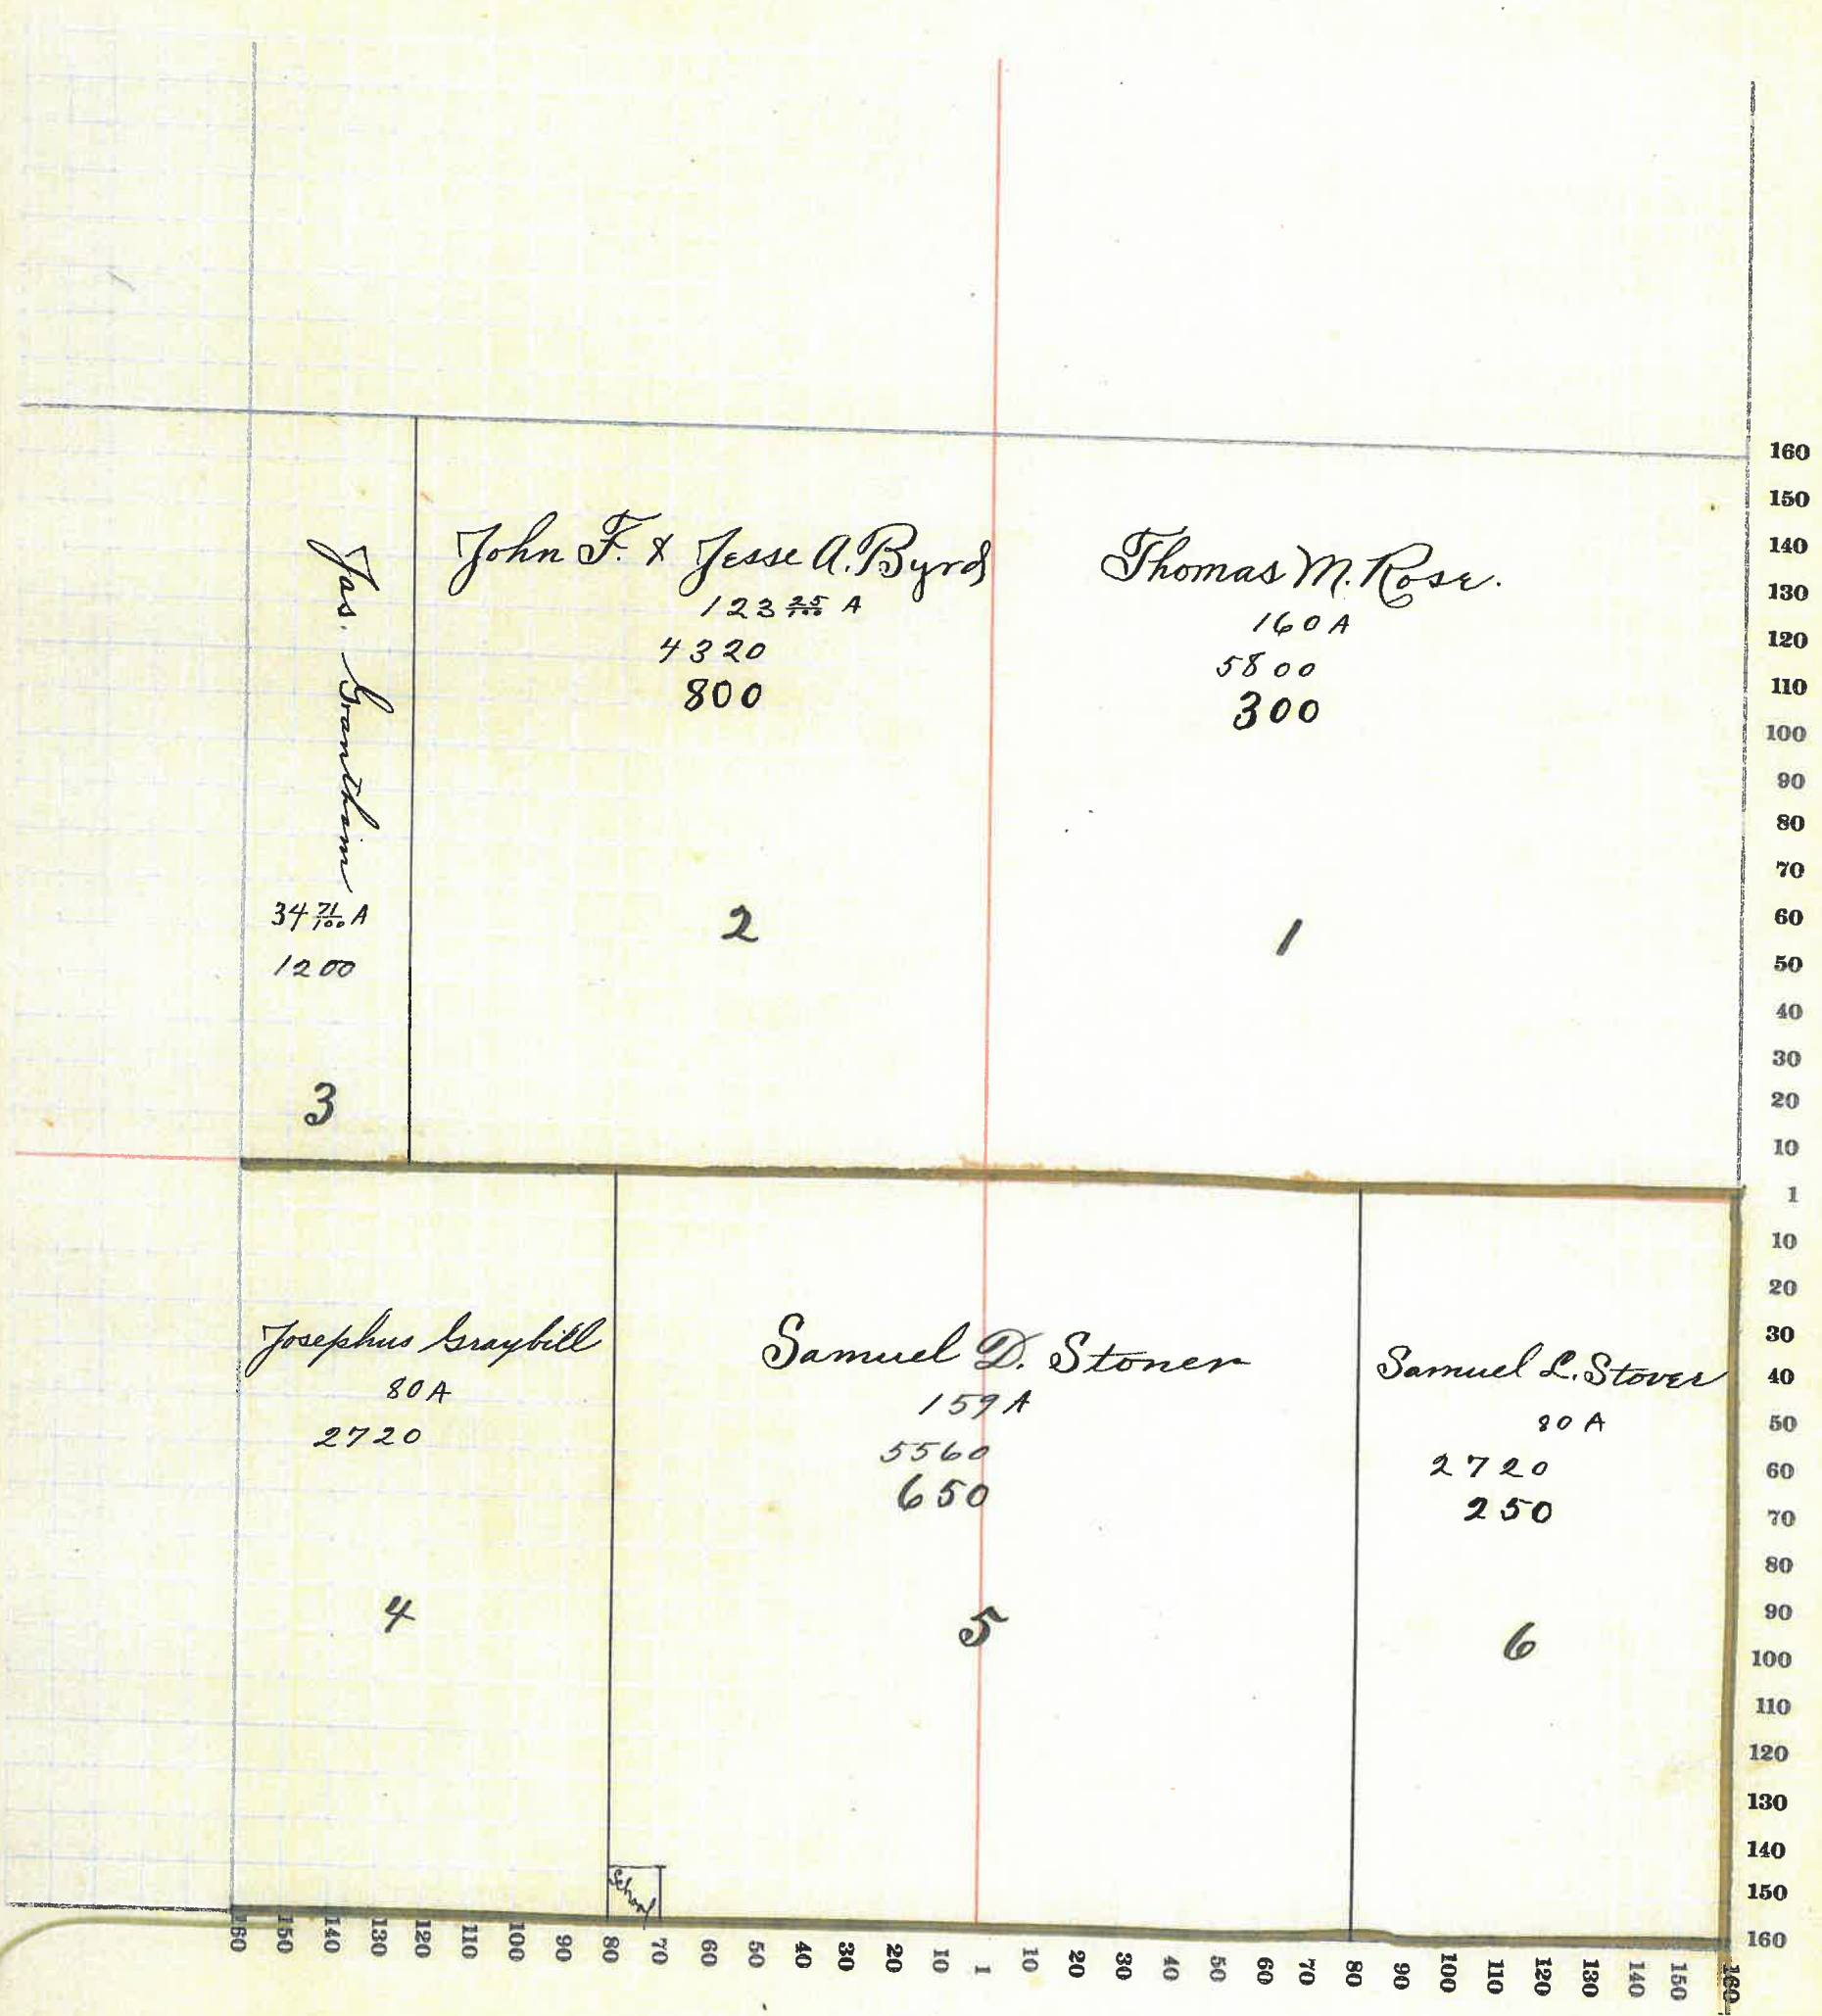 Jas. Grantham
34 71/100 A
1200
3
John F. & Jesse A. Byrd
123 25/100 A
4320
800
2
Thomas M. Rose.
160 A
5800
300
1
Josephus Graybill
80 A
2720
4
Samuel D. Stoner
159 A
5560
650
5
School
Samuel L. Stover
80 A
2720
250
6
160
150
140
130
120
110
100
90
80
70
60
50
40
30
20
10
1
10
20
30
40
50
60
70
80
90
100
110
120
130
140
150
160
160 150 140 130 120 110 100 90 80 70 60 50 40 30 20 10 1 10 20 30 40 50 60 70 80 90 100 110 120 130 140 150 160